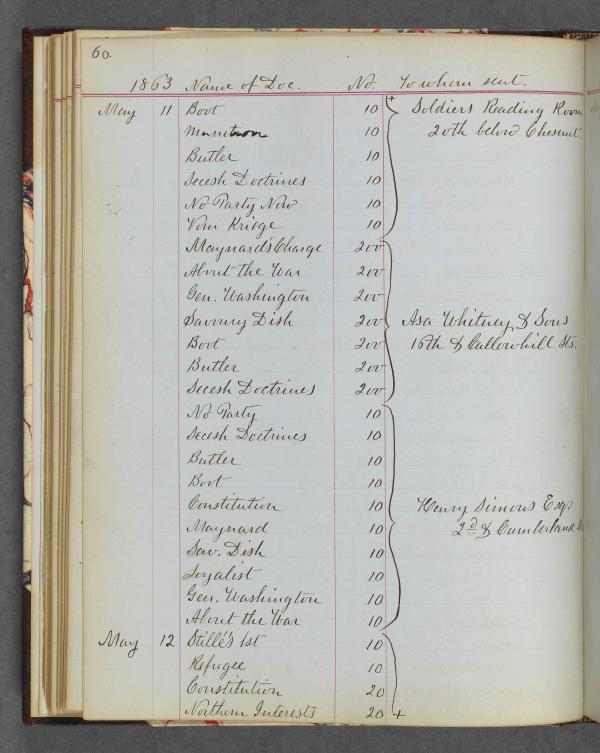 60.
1863 Name of Doc. No. To whom sent.
May 11 Boot 10 Soldiers Reading Room
10 20th below Chesnut
Butler 10
Secesh Doctrines 10
No Party Now 10
Vom Kriege 10
Maynard's Charge 200
About the War 200
Gen. Washington 200
Savoury Dish 200 Asa Whitney & Sons
Boot 200 16th & Callowhill Sts.
Butler 200
Secesh Doctrines 200
No Party 10
Secesh Doctrines 10
Butler 10
Boot 10
Constitution 10 Henry Simons Esqr
Maynard 10 2d & Cumberland
Sav. Dish 10
Loyalist 10
Gen. Washington 10
About the War 10
May 12 Stillé's 1st 10
Refugee 10
Constitution 20
Northern Interests 20